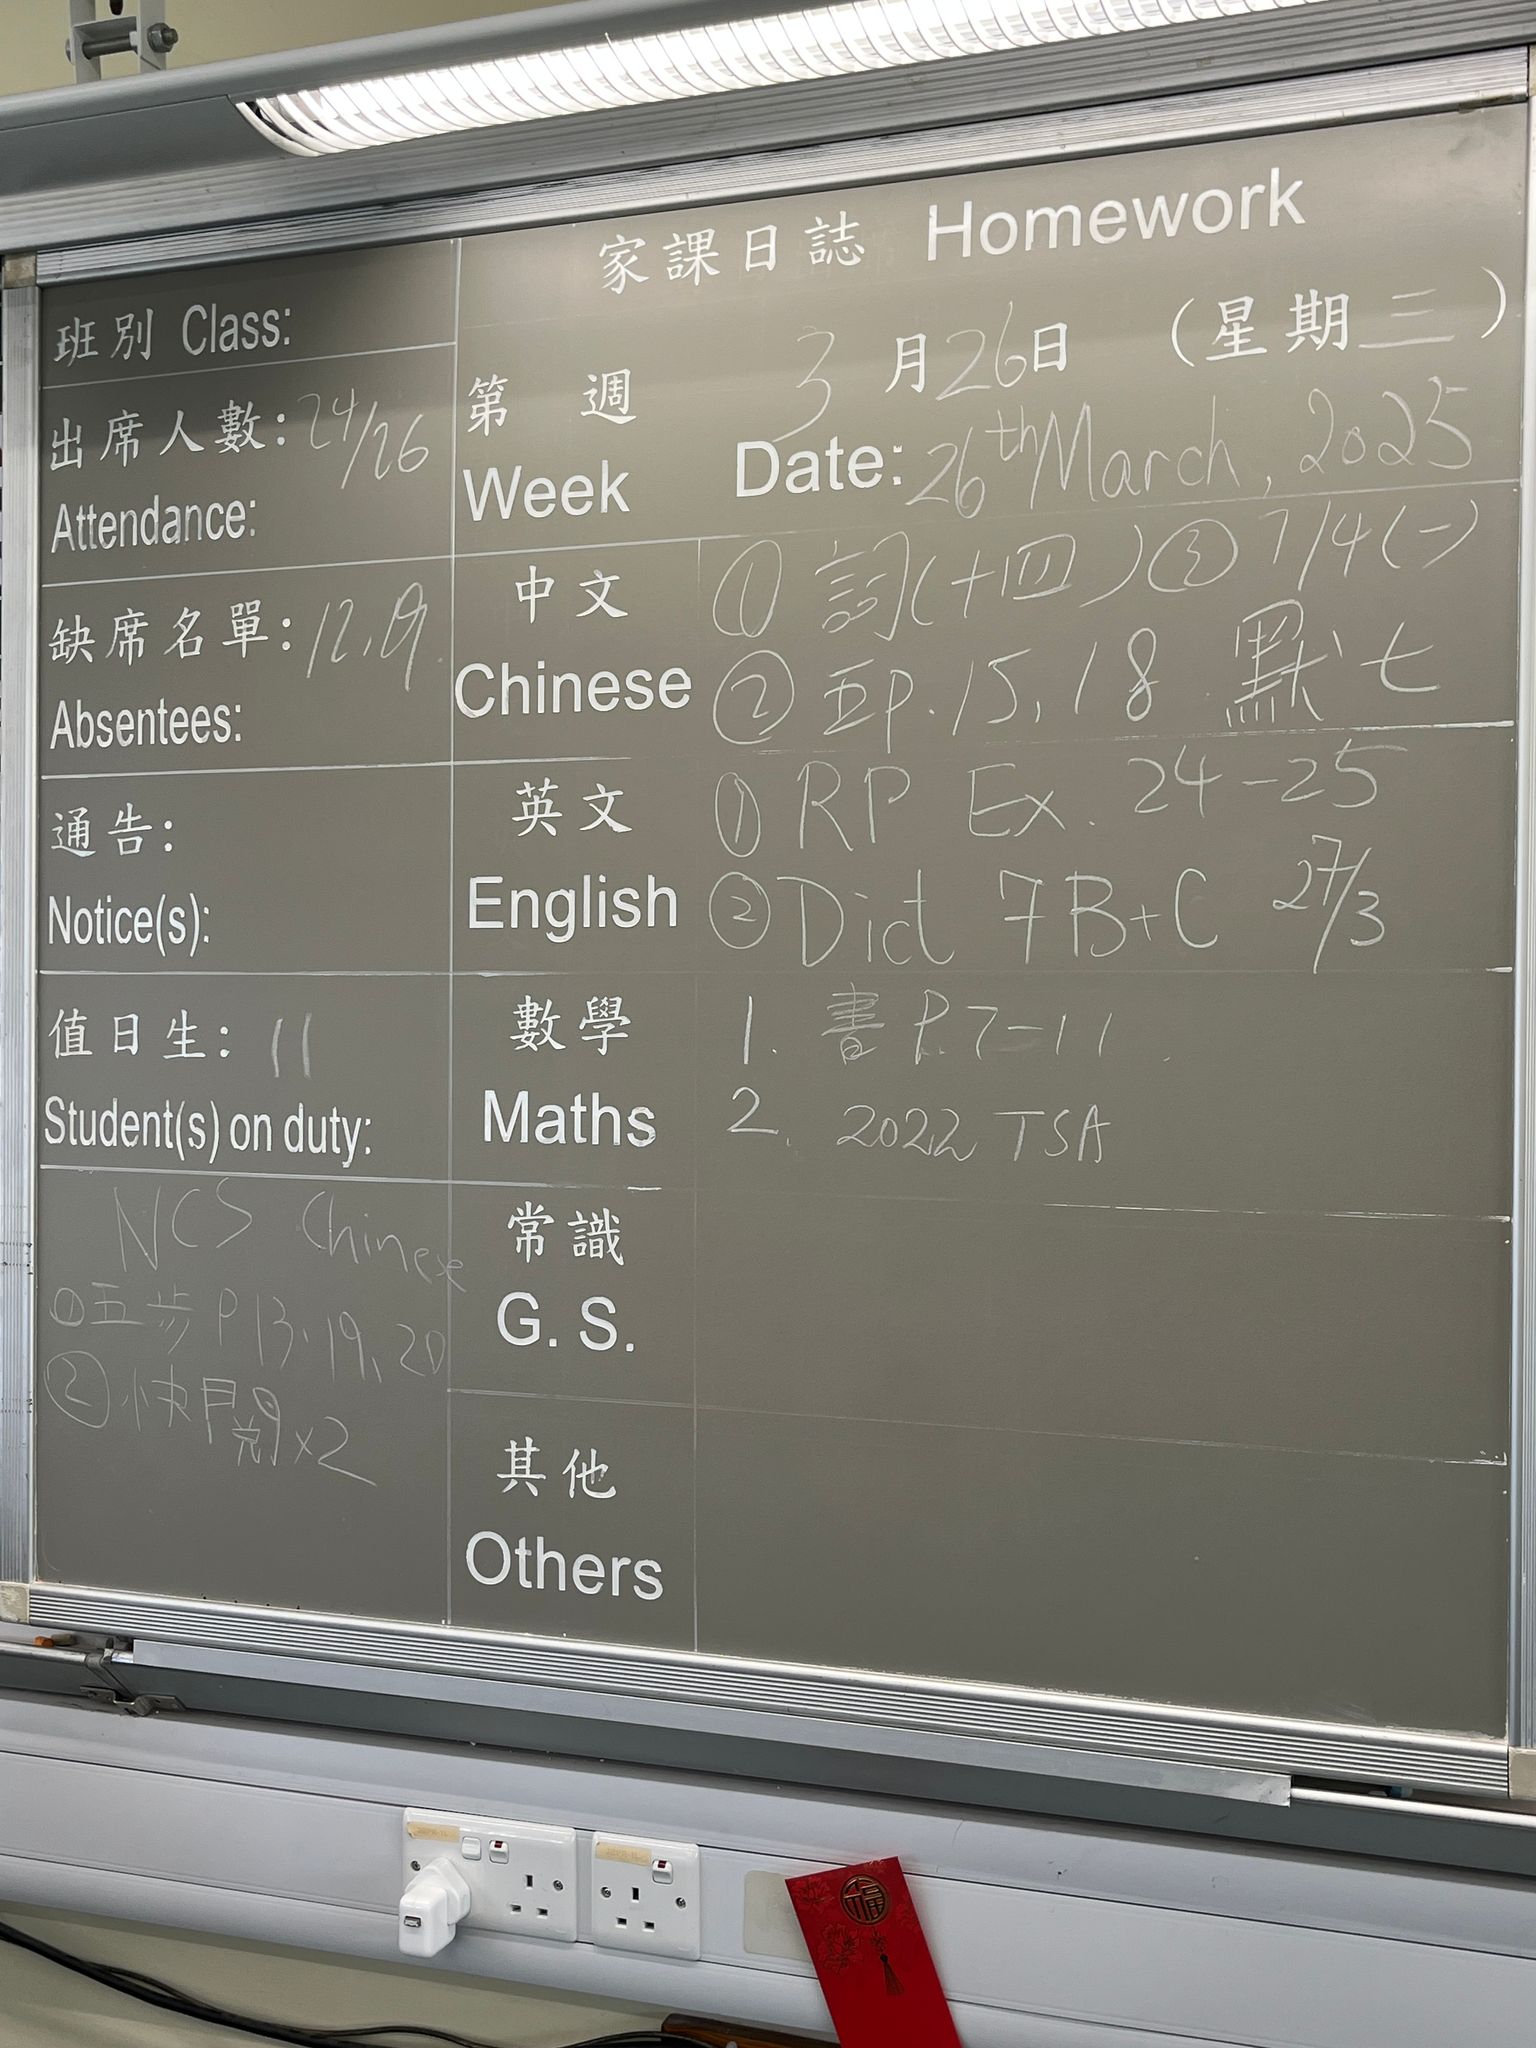 家課日誌 Homework
班別 Class:
出席人數: 24/26
Attendance:
缺席名單: 12, 19.
Absentees:
通告:
Notice(s):
值日生: 11
Student(s) on duty:
NCS Chinese
① 五步 P13、19、20
② 快閱×2
第 週
Week
3月26日 (星期三)
Date: 26th March, 2025
中文
Chinese
① 詞(十四) ③ 7/4(一)
② 五P.15, 18 默七
英文
English
① RP Ex. 24-25
② Dict 7B+C 27/3
數學
Maths
1. 書P.7-11
2. 2022 TSA
常識
G. S.
其他
Others
福